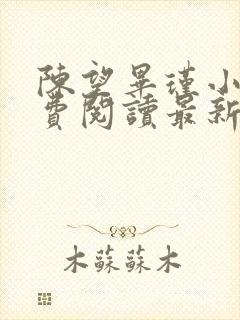 陳望畢瑾小
費閱讀最新
木蘇蘇木